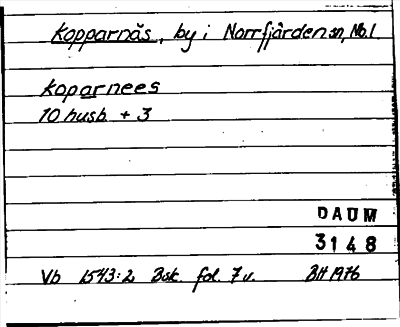 Kopparnäs, by i Norrfjärden sn, Nb.l.
koparnees
10 husb. + 3
DAUM
3148
Vb 1543:2 Bsk. fol. 7v. BH 1976